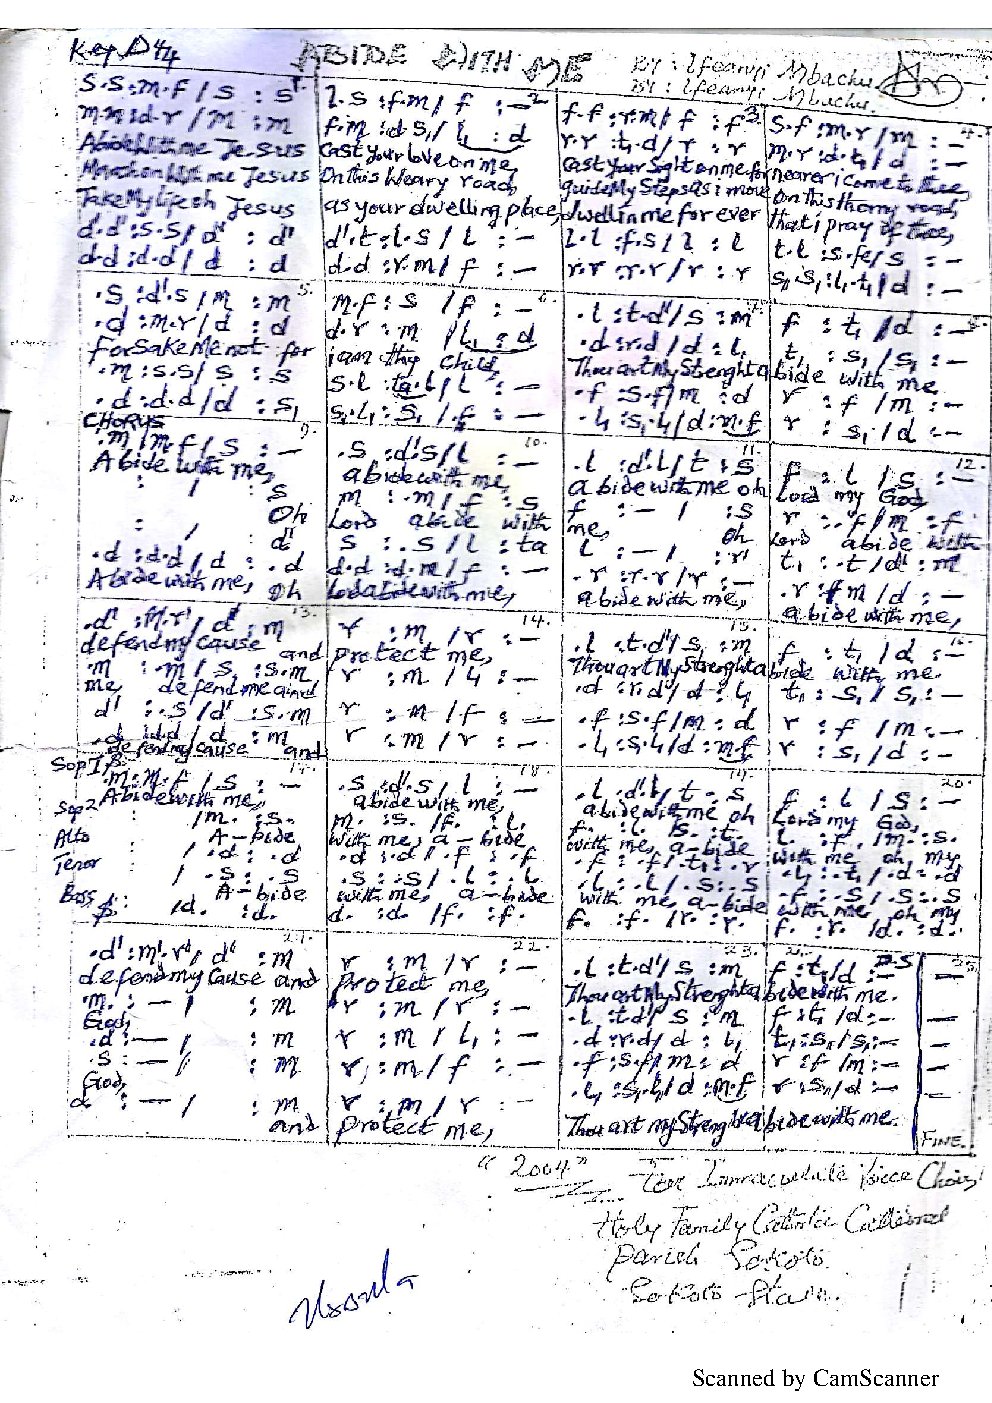 Key D 4/4
ABIDE WITH ME
BY: Ifeanyi Mbachu
BY: Ifeanyi Mbachu.
s.s:m.f / s : s 1.
m.m:d.r / m : m
Abide with me Jesus
March on with me Jesus
Take My life oh Jesus
d'.d':s.s / d' : d'
d.d:d.d / d : d
l.s:f.m / f : — 2.
f.m:d.s₁ / l₁ : d
Cast your love on me,
On this weary road,
as your dwelling place,
d'.t:l.s / l : —
d.d:r.m / f : —
f.f:r.m / f : f 3.
r.r:t₁.d / r : r
Cast your Sight on me for
guide My Steps as i move
dwell in me for ever
l.l:f.s / l : l
r.r:r.r / r : r
s.f:m.r / m : — 4.
m.r:d.t₁ / d : —
nearer i come to thee,
On this thorny road,
that i pray of thee,
t.l:s.fe / s : —
s₁.s₁:l₁.t₁ / d : —
.s:d'.s / m : m 5.
.d:m.r / d : d
forsake Me not for
.m:s.s / s : s
.d:d.d / d : s₁
m.f:s / f : — 6.
d.r:m / l₁ : d
i am thy Child,
s.l:ta.l / l : —
s₁.l₁:s₁ / f : —
.l:t.d' / s : m 7.
.d:r.d / d : l₁
Thou art My Strenght a
.f:s.f / m : d
.l₁:s₁.l₁ / d : m.f
f : t₁ / d : — 8.
t₁ : s₁ / s₁ : —
bide with me
r : f / m : —
r : s₁ / d : —
CHORUS
.m / m.f / s : — 9.
Abide with me,
: / : s
Oh
: / : d'
.d:d.d / d : .d
Abide with me, Oh
.s:d'.s / l : — 10.
abide with me,
m : .m / f : s
Lord abide with
s : .s / l : ta
d.d:d.m / f : —
Lord abide with me,
.l:d'.l / t : s 11.
abide with me oh
f : — / : s
me, oh
l : — / : r'
.r:r.r / r : —
abide with me,
f : l / s : — 12.
Lord my God,
r : .f / m : f
Lord abide with
t₁ : .t / d' : m
.r:f.m / d : —
abide with me,
.d':m'.r' / d' : m 13.
defend my cause and
m : .m / s : s.m
me, defend me and
d' : .s / d' : s.m
.d:d.d / d : m
defend my cause and
r : m / r : — 14.
protect me,
r : m / l₁ : —
r : m / f : —
r : m / r : —
.l:t.d' / s : m 15.
Thou art My Strenght a
.d:r.d / d : l₁
.f:s.f / m : d
.l₁:s₁.l₁ / d : m.f
f : t₁ / d : — 16.
bide with me.
t₁ : s₁ / s₁ : —
r : f / m : —
r : s₁ / d : —
Sop 1
.m:m.f / s : — 17.
Abide with me,
Sop 2 : / m. : s.
Alto A-bide
Tenor : / .d : .d
: / .s : .s
Bass A-bide
: / d. : d.
.s:d'.s / l : — 18.
abide with me,
m. : s. / f. : l.
with me, a-bide
.d : .d / .f : .f
.s : .s / .l : .l
with me, a-bide
d. : d. / f. : f.
.l:d'.l / t : s 19.
abide with me oh
f. : l. / s. : t.
with me, a-bide
.f : .f / t₁ : .r
.l : .l / .s : .s
with me, a-bide
f. : f. / r. : r.
f : l / s : — 20.
Lord my God,
l. : f. / m. : s.
with me oh, my
.l₁ : .t₁ / .d : .d
.f : .s / .s : .s
with me oh my
f. : r. / d. : d.
.d':m'.r' / d' : m 21.
defend my Cause and
m. : — / : m
God,
.d : — / : m
.s : — / : m
God,
d. : — / : m
and
r : m / r : — 22.
Protect me,
r : m / r : —
r : m / l₁ : —
r : m / f : —
r : m / r : —
Protect me,
.l:t.d' / s : m 23.
Thou art My Strenght a
.l:t.d' / s : m
.d:r.d / d : l₁
.f:s.f / m : d
.l₁:s₁.l₁ / d : m.f
Thou art my Strenght a
D.S
f : t₁ / d : — 24.
bide with me.
f : t₁ / d : —
t₁ : s₁ / s₁ : —
r : f / m : —
r : s₁ / d : —
bide with me.
25.
—
—
—
—
—
FINE.
"2004"
For Immaculate Voice Choir
Holy Family Catholic Cathedral
Parish Sokoto
Sokoto State.
Scanned by CamScanner